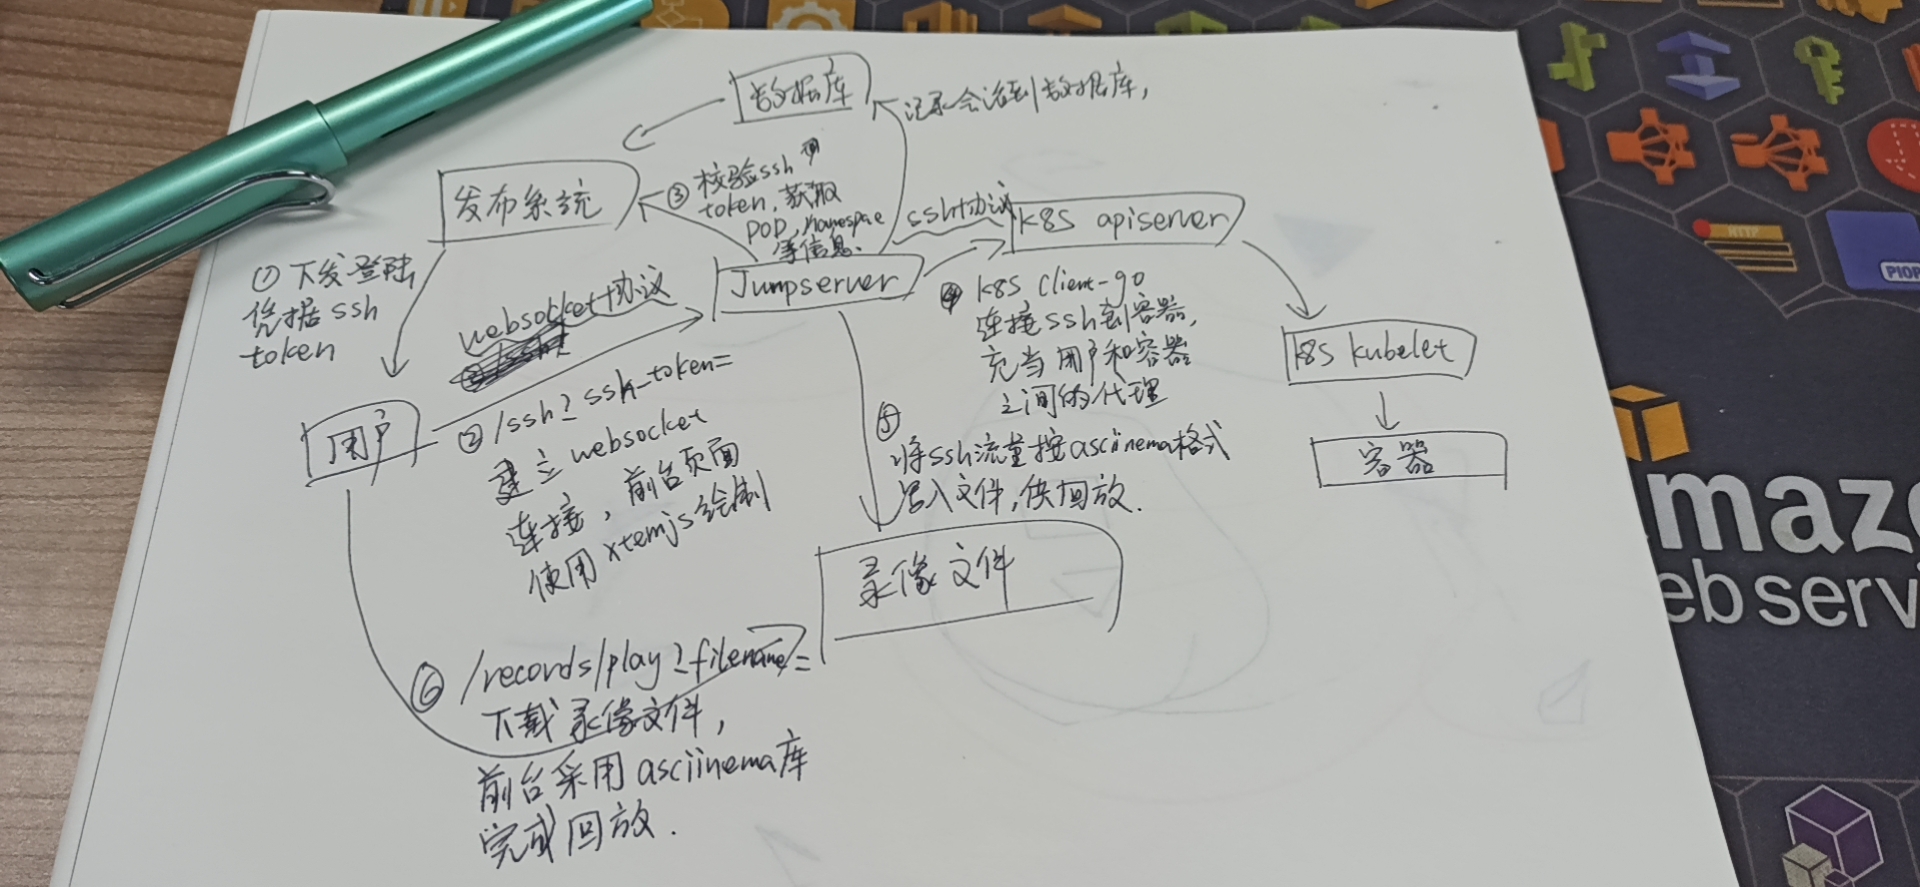 数据库
记录会话到数据库,
发布系统
③ 校验ssh
token,获取
POD, Namespae
等信息.
ssh协议
k8S apiserver
① 下发登陆
凭据 ssh
token
websocket协议
Jumpserver
④ k8S client-go
连接ssh到容器,
充当用户和容器
之间的代理
k8S kubelet
容器
用户
② /ssh?ssh_token=
建立websocket
连接,前台页面
使用xtemjs绘制
⑤
将ssh流量按asciinema格式
写入文件,供回放.
录像文件
⑥ /records/play?filename=
下载录像文件,
前台采用asciinema库
完成回放.
HTTP
PIOP
amazo
web servi